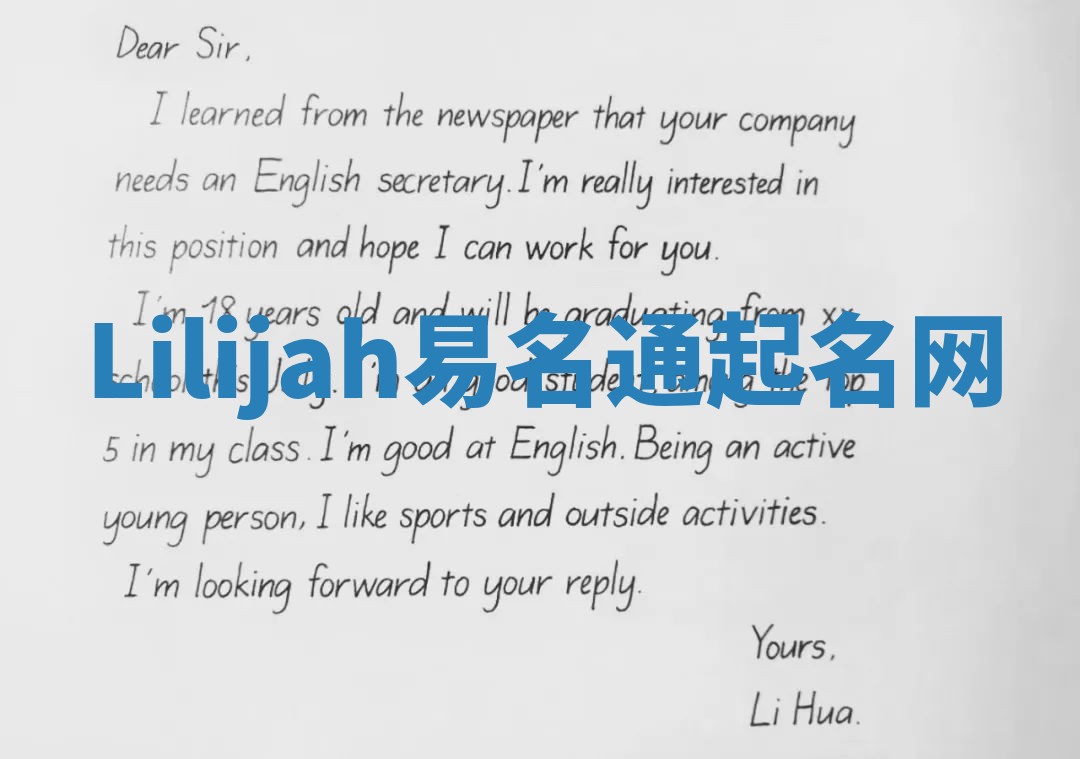 Dear Sir,
I learned from the newspaper that your company
needs an English secretary. I'm really interested in
this position and hope I can work for you.
I'm 18 years old and will be graduating from xx
Lilijah易名通起名网
school this July. I'm a good student, among the top
5 in my class. I'm good at English. Being an active
young person, I like sports and outside activities.
I'm looking forward to your reply.
Yours,
Li Hua.